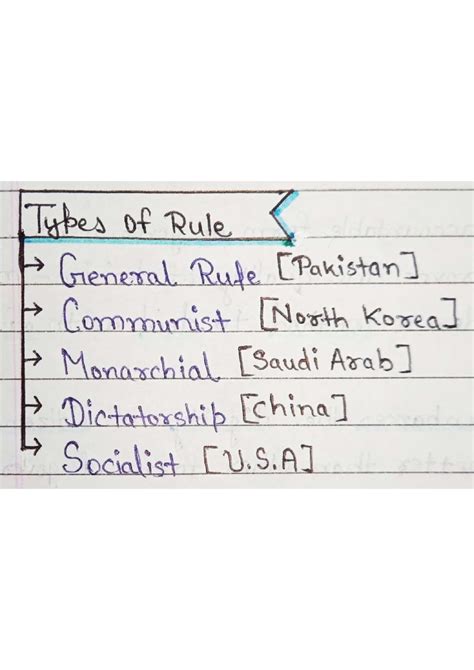 Types of Rule
General Rule [Pakistan]
Communist [North Korea]
Monarchial [Saudi Arab]
Dictatorship [China]
Socialist [U.S.A]